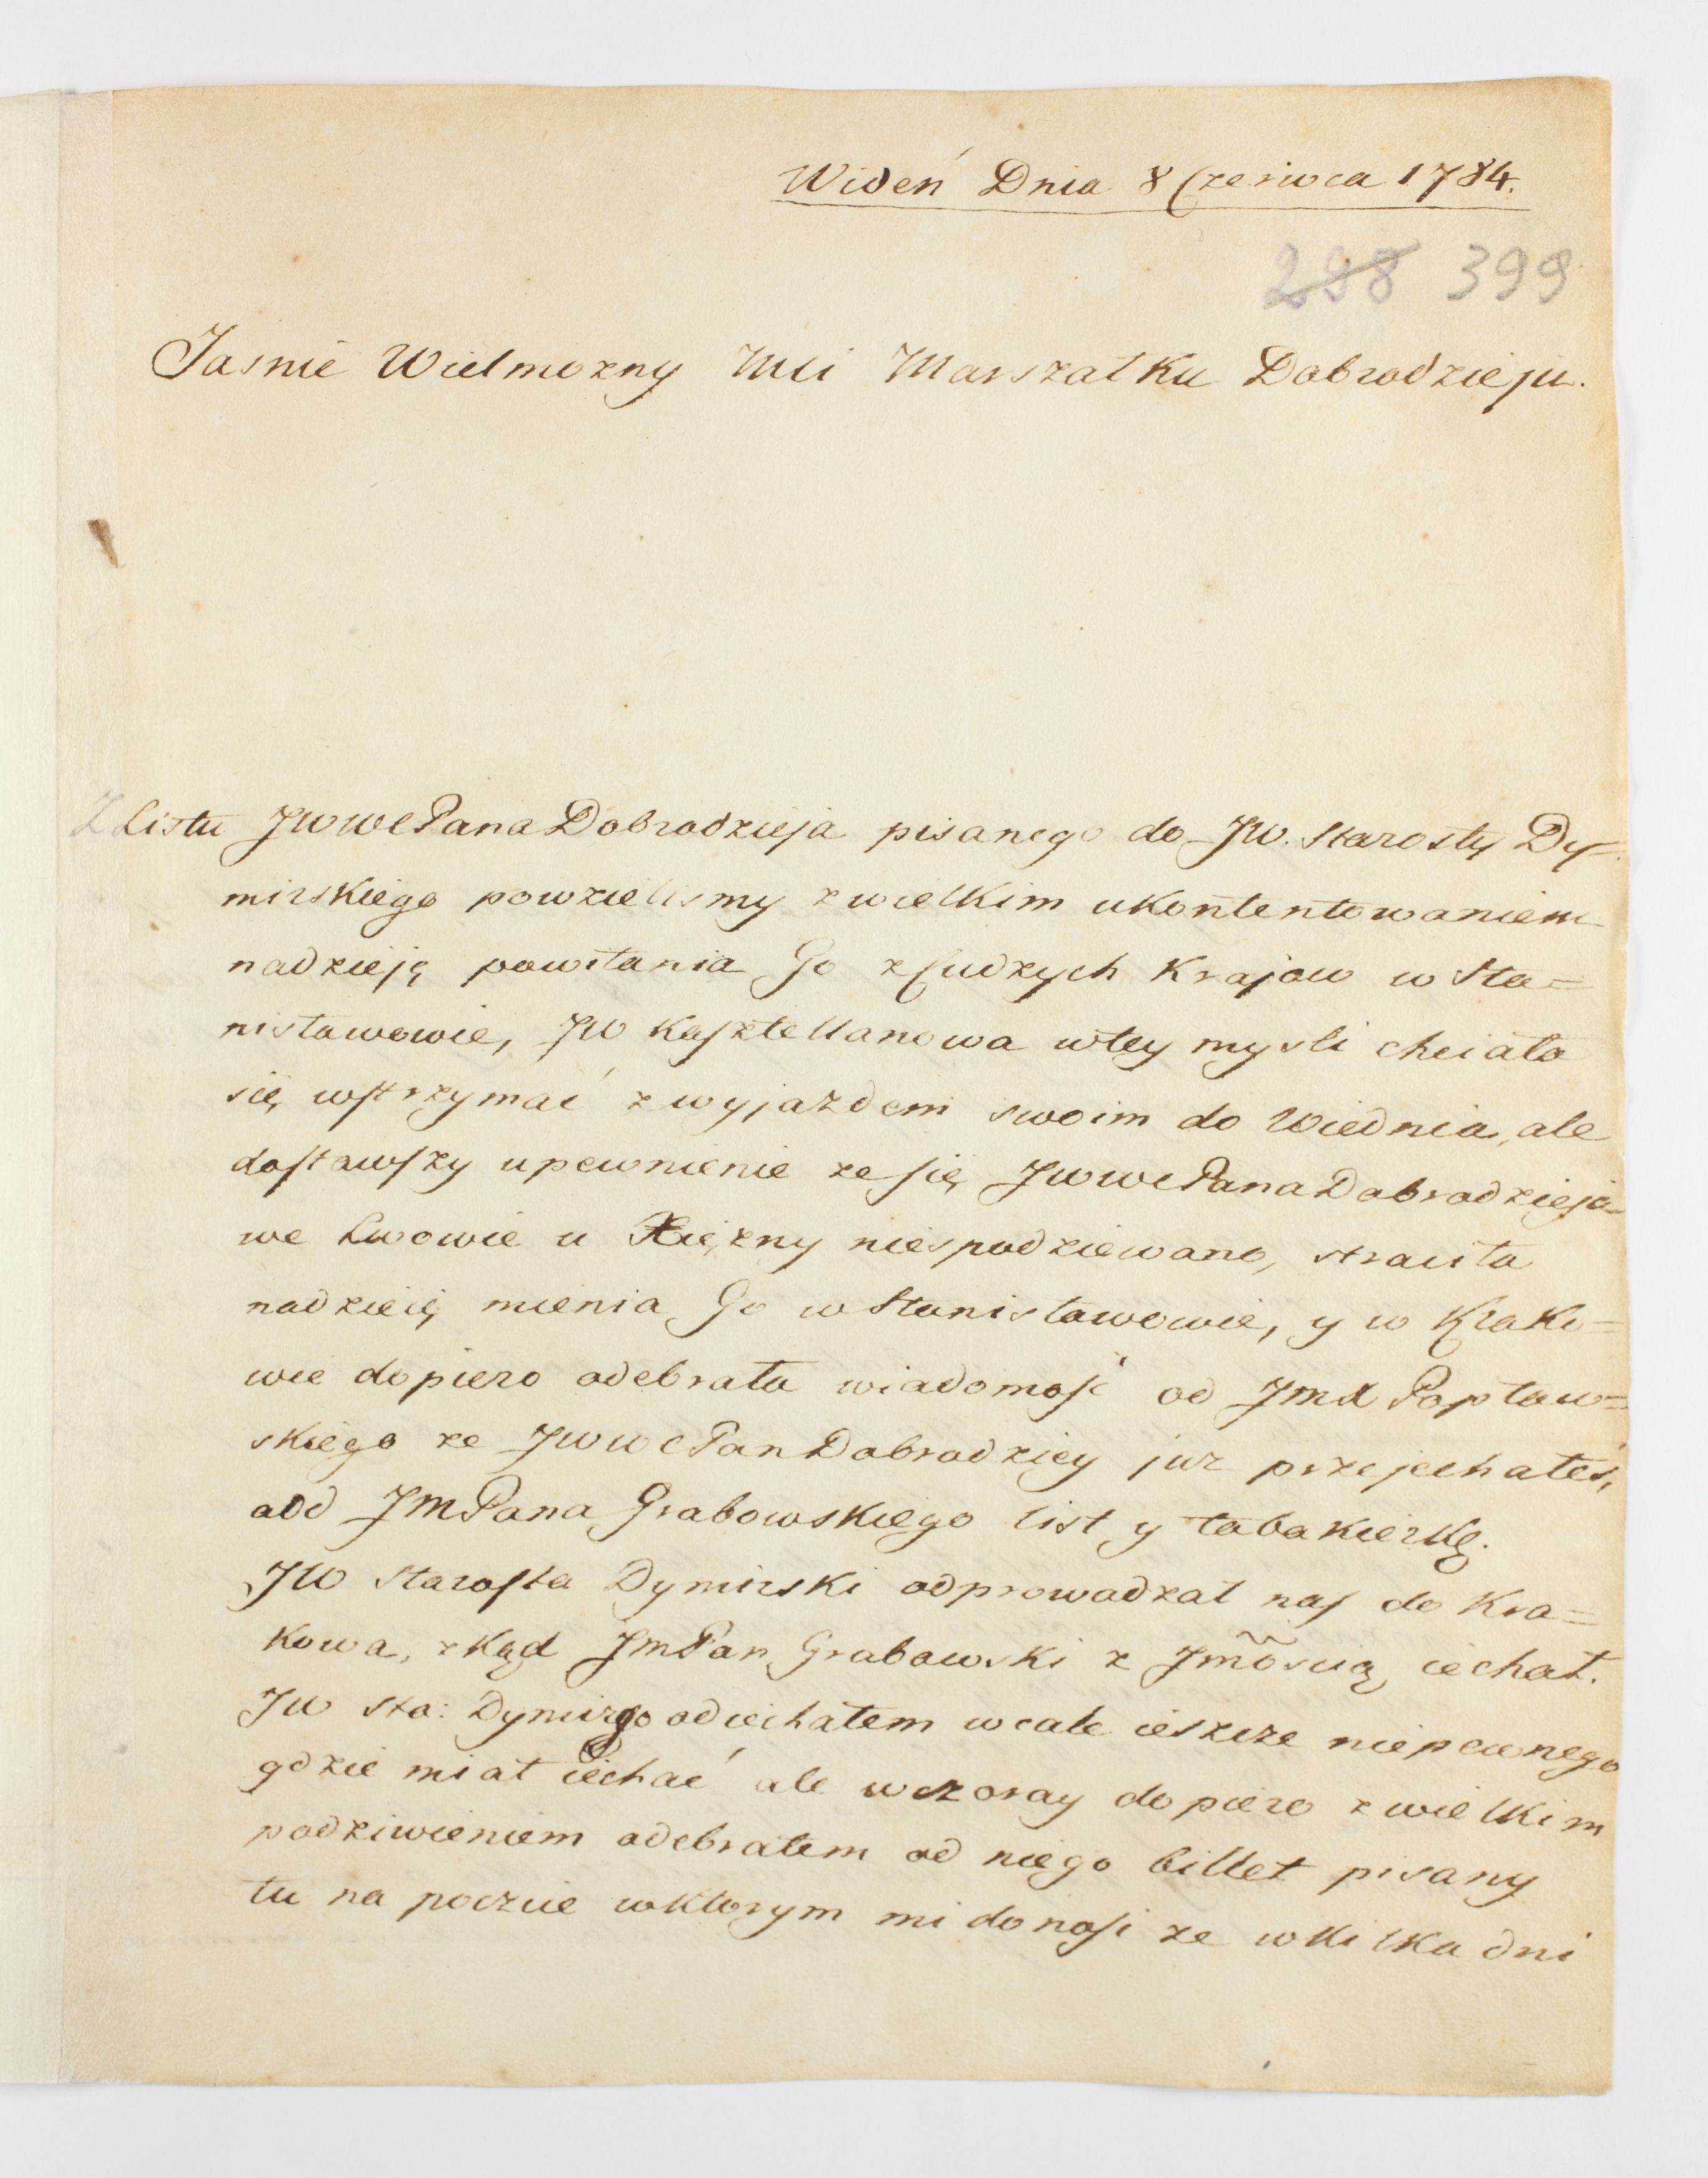 Wideń Dnia 8 Czerwca 1784.
298 399
Jasnie Wielmozny Mci Marszałku Dobrodzieju.
Z Listu JWWC Pana Dobrodzieja pisanego do JW. Starosty Dy=
mirskiego powzielismy z wielkim ukontentowaniem
nadzieję powitania Go z Cudzych Krajow w Sta=
nisławowie, JW Kasztellanowa w tey mysli chciała
się wstrzymać z wyjazdem swoim do Wiednia, ale
dostawszy upewnienie ze się JWWC Pana Dobrodzieja
we Lwowie u Xiężny niespodziewano, straciła
nadzieię mienia Go w Stanisławowie, y w Krako=
wie dopiero odebrała wiadomość od JmX Popław=
skiego ze JWWC Pan Dobrodziey juz przejechałeś,
a od JM Pana Grabowskiego list y tabakierkę.
JW Starosta Dymirski odprowadzał nas do Kra=
kowa, zkąd Jm Pan Grabowski z Jmością iechał.
JW Sta: Dymirgo odiechałem wcale ieszcze niepewnego
gdzie miał iechać ale wczoray dopiero z wielkim
podziwieniem odebrałem od niego billet pisany
tu na poczcie w ktorym mi donosi ze w kilka dni